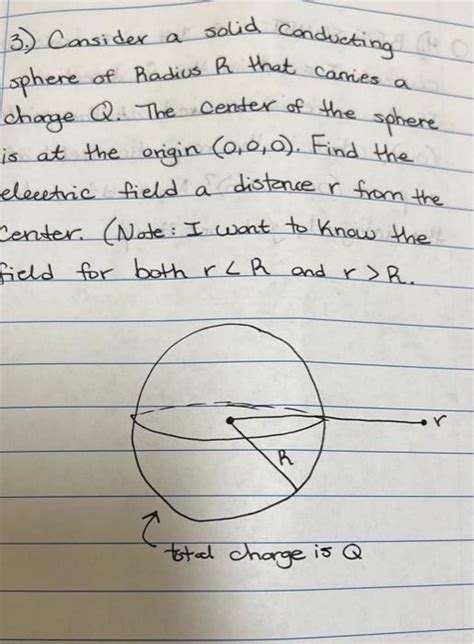 3.) Consider a solid conducting
sphere of Radius R that carries a
charge Q. The center of the sphere
is at the origin (0,0,0). Find the
electric field a distance r from the
center. (Note: I want to know the
field for both r < R and r > R.
r
R
total charge is Q